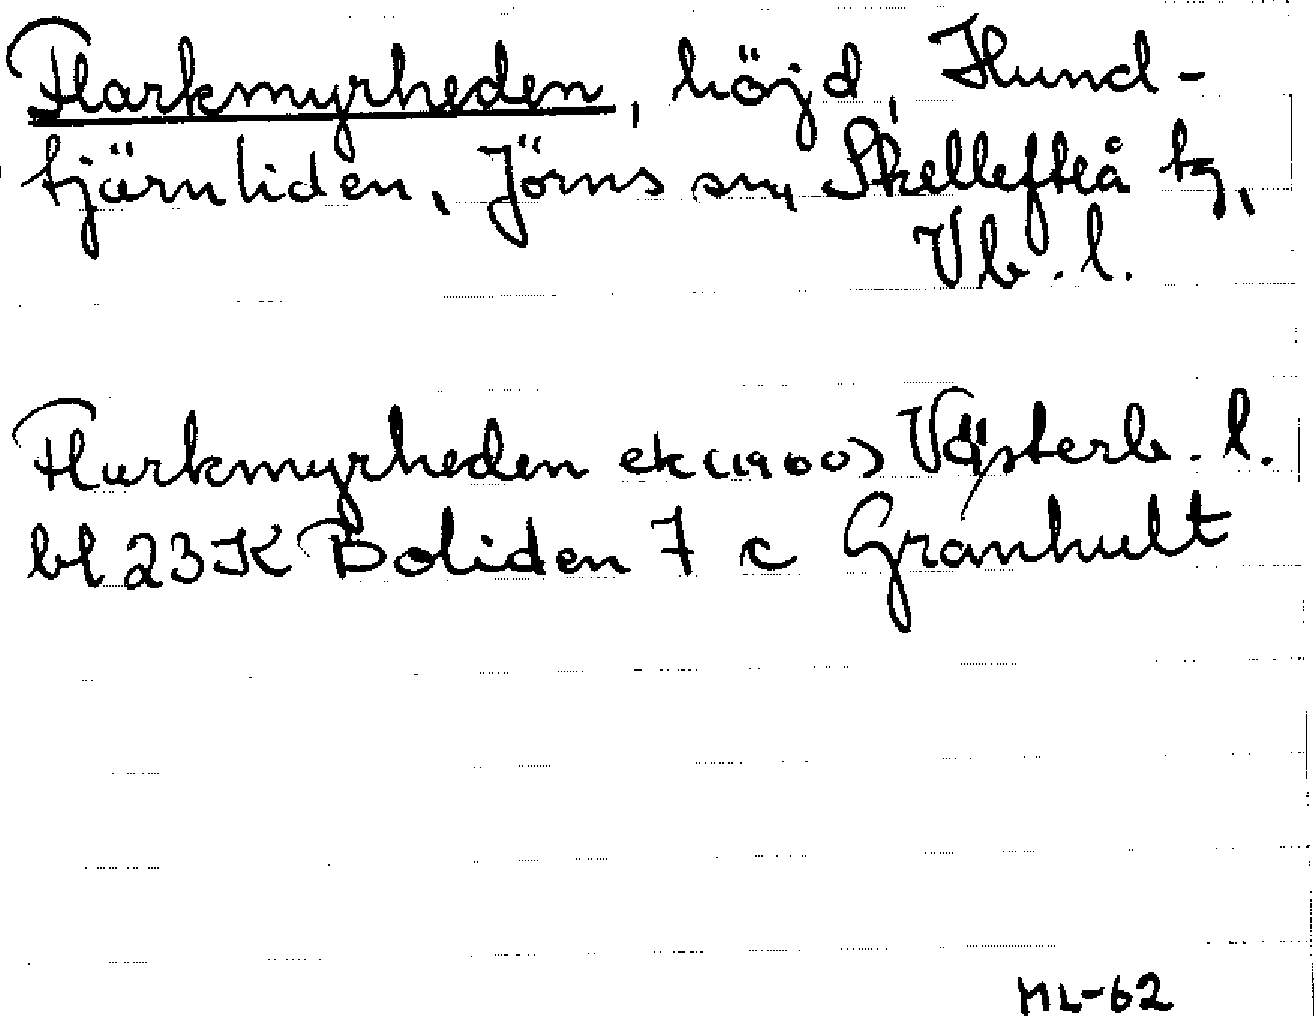 Flarkmyrheden, höjd, Hund-
tjärnliden, Jörns sn, Skellefteå tg,
Vb. l.
Flurkmyrheden ek (1960) Västerb. l.
bl 23K Boliden 7 c Granhult
ML-62